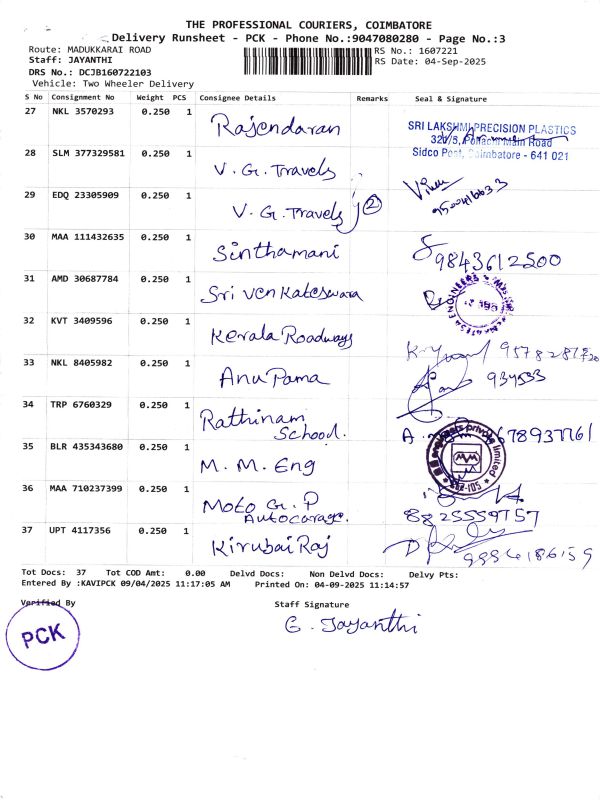 THE PROFESSIONAL COURIERS, COIMBATORE
Delivery Runsheet - PCK - Phone No.:9047080280 - Page No.:3
Route: MADUKKARAI ROAD RS No.: 1607221
Staff: JAYANTHI RS Date: 04-Sep-2025
DRS No.: DCJB160722103
Vehicle: Two Wheeler Delivery
S No Consignment No Weight PCS Consignee Details Remarks Seal & Signature
27 NKL 3570293 0.250 1 Rajendaran
SRI LAKSHMI PRECISION PLASTICS
320/5, Pollachi Main Road
Sidco Post, Coimbatore - 641 021
28 SLM 377329581 0.250 1 V. G. Travels
29 EDQ 23305909 0.250 1 V. G. Travels 2
30 MAA 111432635 0.250 1 Sinthamani 9843612500
31 AMD 30687784 0.250 1 Sri Venkateswara
32 KVT 3409596 0.250 1 Kerala Roadways
33 NKL 8405982 0.250 1 AnuPama
34 TRP 6760329 0.250 1 Rathinam School.
35 BLR 435343680 0.250 1 M. M. Eng
36 MAA 710237399 0.250 1 Moto G. P Autocarage. 8825559757
37 UPT 4117356 0.250 1 Kirubai Raj
Tot Docs: 37 Tot COD Amt: 0.00 Delvd Docs: Non Delvd Docs: Delvy Pts:
Entered By :KAVIPCK 09/04/2025 11:17:05 AM Printed On: 04-09-2025 11:14:57
Verified By Staff Signature
PCK G. Jayanthi